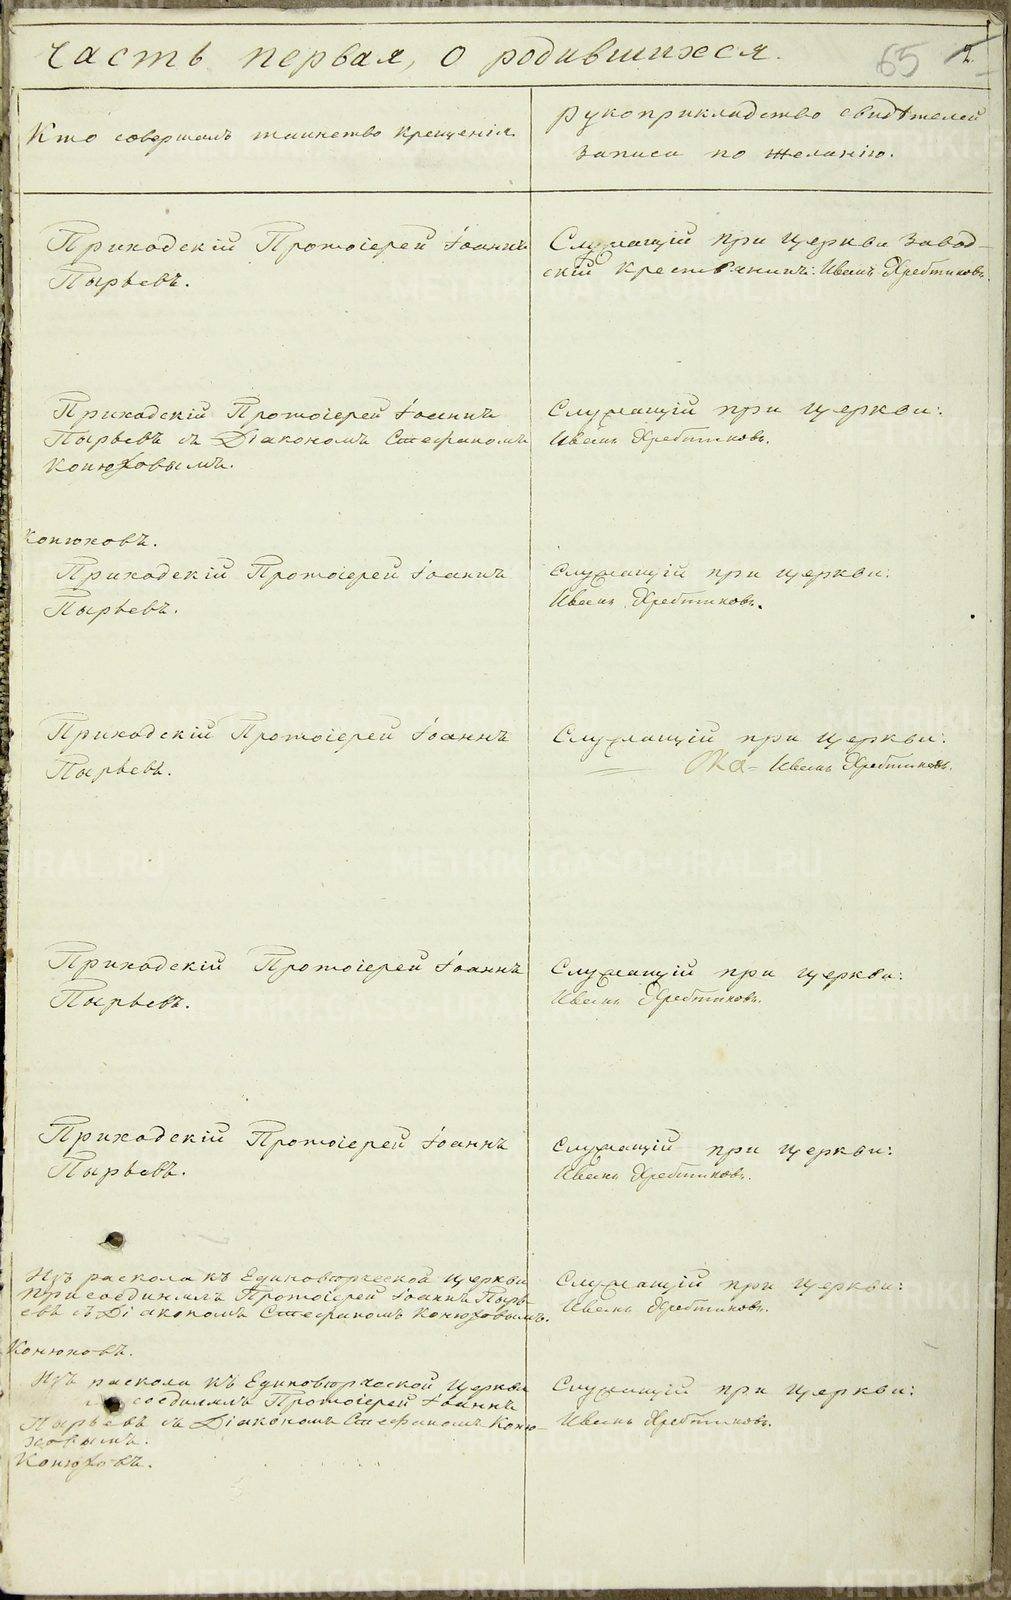 Часть первая, о родившихся.
65
2.
Кто совершалъ таинство крещенія
Рукоприкладство свидѣтелей
записи по желанію.
Приходскій Протоіерей Іоаннъ
Пырьевъ.
Служащій при церкви завод-
скій крестьянинъ: Иванъ Хребтиковъ.
Приходскій Протоіерей Іоаннъ
Пырьевъ съ Діакономъ Стефаномъ
Конюховымъ.
Служащій при церкви:
Иванъ Хребтиковъ.
Конюховъ.
Приходскій Протоіерей Іоаннъ
Пырьевъ.
Служащій при церкви:
Иванъ Хребтиковъ.
Приходскій Протоіерей Іоаннъ
Пырьевъ.
Служащій при церкви:
Иванъ Хребтиковъ.
Приходскій Протоіерей Іоаннъ
Пырьевъ.
Служащій при церкви:
Иванъ Хребтиковъ.
Приходскій Протоіерей Іоаннъ
Пырьевъ.
Служащій при церкви:
Иванъ Хребтиковъ.
Изъ раскола къ Единоверческой церкви
присоединилъ Протоіерей Іоаннъ Пырь-
евъ съ Діакономъ Стефаномъ Конюховымъ.
Служащій при церкви:
Иванъ Хребтиковъ.
Конюховъ.
Изъ раскола къ Единоверческой Церкви
соединилъ Протоіерей Іоаннъ
Пырьевъ съ Діакономъ Стефаномъ Коню-
ховымъ.
Служащій при церкви:
Иванъ Хребтиковъ.
Конюховъ.
METRIKI.GASO-URAL.RU